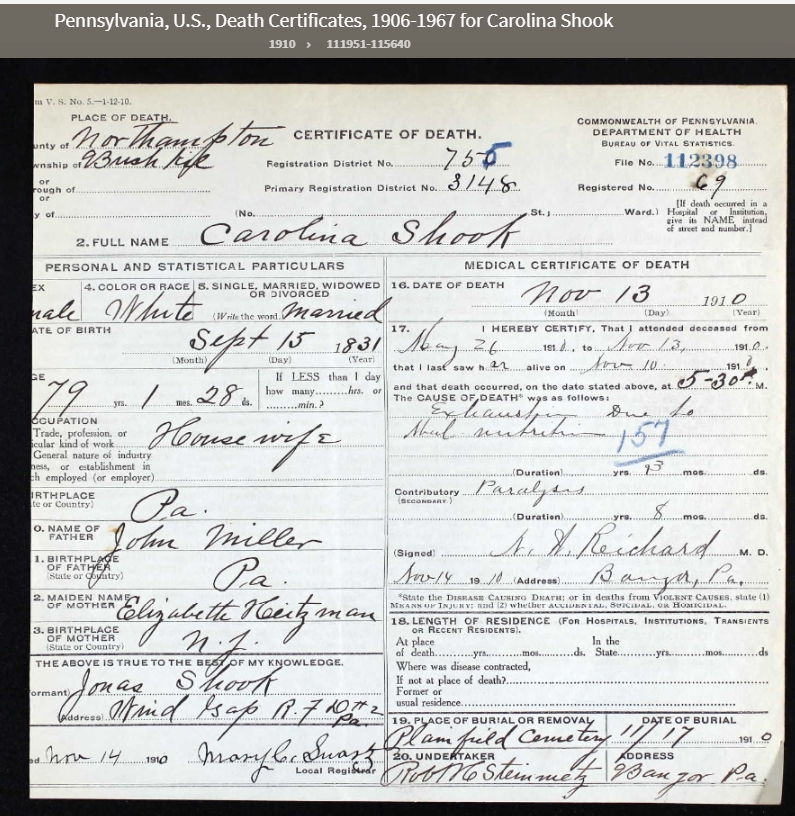 Pennsylvania, U.S., Death Certificates, 1906-1967 for Carolina Shook
1910 › 111951-115640
V. S. No. 5.—1-12-10.
PLACE OF DEATH.
unty of Northampton
CERTIFICATE OF DEATH.
COMMONWEALTH OF PENNSYLVANIA.
DEPARTMENT OF HEALTH
BUREAU OF VITAL STATISTICS.
wnship of Bushkill
Registration District No. 755
File No. 112398
or
rough of
Primary Registration District No. 3148
Registered No. 69
or
y of
(No. St.; Ward.)
[If death occurred in a
Hospital or Institution,
give its NAME instead
of street and number.]
2. FULL NAME Carolina Shook
PERSONAL AND STATISTICAL PARTICULARS
EX
male
4. COLOR OR RACE
White
5. SINGLE, MARRIED, WIDOWED
OR DIVORCED
(Write the word) married
ATE OF BIRTH
Sept 15 1831
(Month) (Day) (Year)
GE
79 yrs. 1 mos. 28 ds.
If LESS than 1 day
how many hrs. or
min.?
CCUPATION
Trade, profession, or
icular kind of work
Housewife
General nature of industry
ness, or establishment in
ch employed (or employer)
IRTHPLACE
te or Country)
Pa.
0. NAME OF
FATHER
John Miller
1. BIRTHPLACE
OF FATHER
(State or Country)
Pa.
2. MAIDEN NAME
OF MOTHER
Elizabeth Heitzman
3. BIRTHPLACE
OF MOTHER
(State or Country)
N. J.
THE ABOVE IS TRUE TO THE BEST OF MY KNOWLEDGE.
ormant) Jonas Shook
(Address) Wind Gap R. F D # 2
Pa.
ed Nov 14 1910
Local Registrar
MEDICAL CERTIFICATE OF DEATH
16. DATE OF DEATH
Nov 13 1910
(Month) (Day) (Year)
17. I HEREBY CERTIFY, That I attended deceased from
May 26 1910, to Nov 13, 1910.
that I last saw her alive on Nov 10 1910
and that death occurred, on the date stated above, at 5-30 M.
The CAUSE OF DEATH* was as follows:
Exhaustion Due to
Mal nutrition
157
(Duration) yrs. mos. ds.
Contributory Paralysis
(SECONDARY.)
(Duration) yrs. 8 mos. ds.
(Signed) Reichard M. D.
Nov 14 1910 (Address) Bangor, Pa.
*State the DISEASE CAUSING DEATH; or in deaths from VIOLENT CAUSES, state (1)
MEANS OF INJURY; and (2) whether ACCIDENTAL, SUICIDAL, OR HOMICIDAL.
18. LENGTH OF RESIDENCE (FOR HOSPITALS, INSTITUTIONS, TRANSIENTS
OR RECENT RESIDENTS).
At place In the
of death yrs. mos. ds. State yrs. mos. ds
Where was disease contracted,
If not at place of death?
Former or
usual residence
19. PLACE OF BURIAL OR REMOVAL
Plainfield Cemetery
DATE OF BURIAL
11/17 1910
20. UNDERTAKER
Steinmetz
ADDRESS
Bangor Pa.